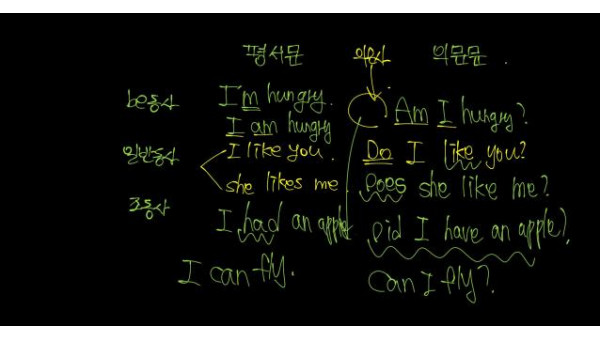 평서문 의문사 의문문
be동사 I'm hungry. Am I hungry?
I am hungry
일반동사 I like you. Do I like you?
she likes me. Does she like me?
조동사 I had an apple Did I have an apple?
I can fly. Can I fly?